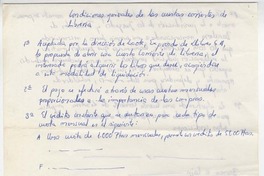 Condiciones generales de las cuentas corrientes de
librería
1ª Aceptada por la dirección de
la propuesta de abrir una cuenta corriente de librería, el
interesado podrá adquirir los libros que desee, acogiéndose
a esta modalidad de liquidación.
2ª El pago se efectúa a través de unas cuotas mensuales
proporcionales a la importancia de las compras.
3ª El crédito que se autoriza para cada tipo de
cuota mensual es el siguiente:
A Una cuota de 6.000 Ptas mensuales, permite un crédito de
F.